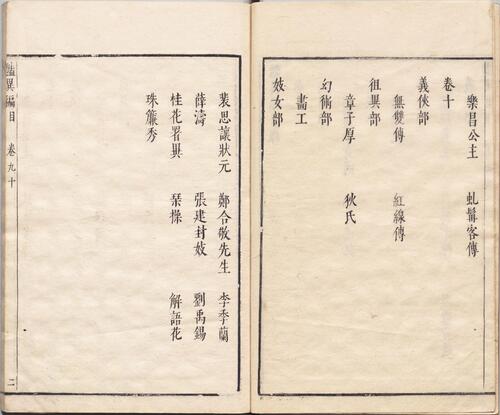 樂昌公主 虬髯客傳
卷十
義俠部
無雙傳 紅線傳
徂異部
章子厚 狄氏
幻術部
畵工
妓女部
裴思讓狀元 鄭合敬先生 李季蘭
薛濤 張建封妓 劉禹錫
桂花署異 琹操 解語花
珠簾秀
異編目 卷九十 二